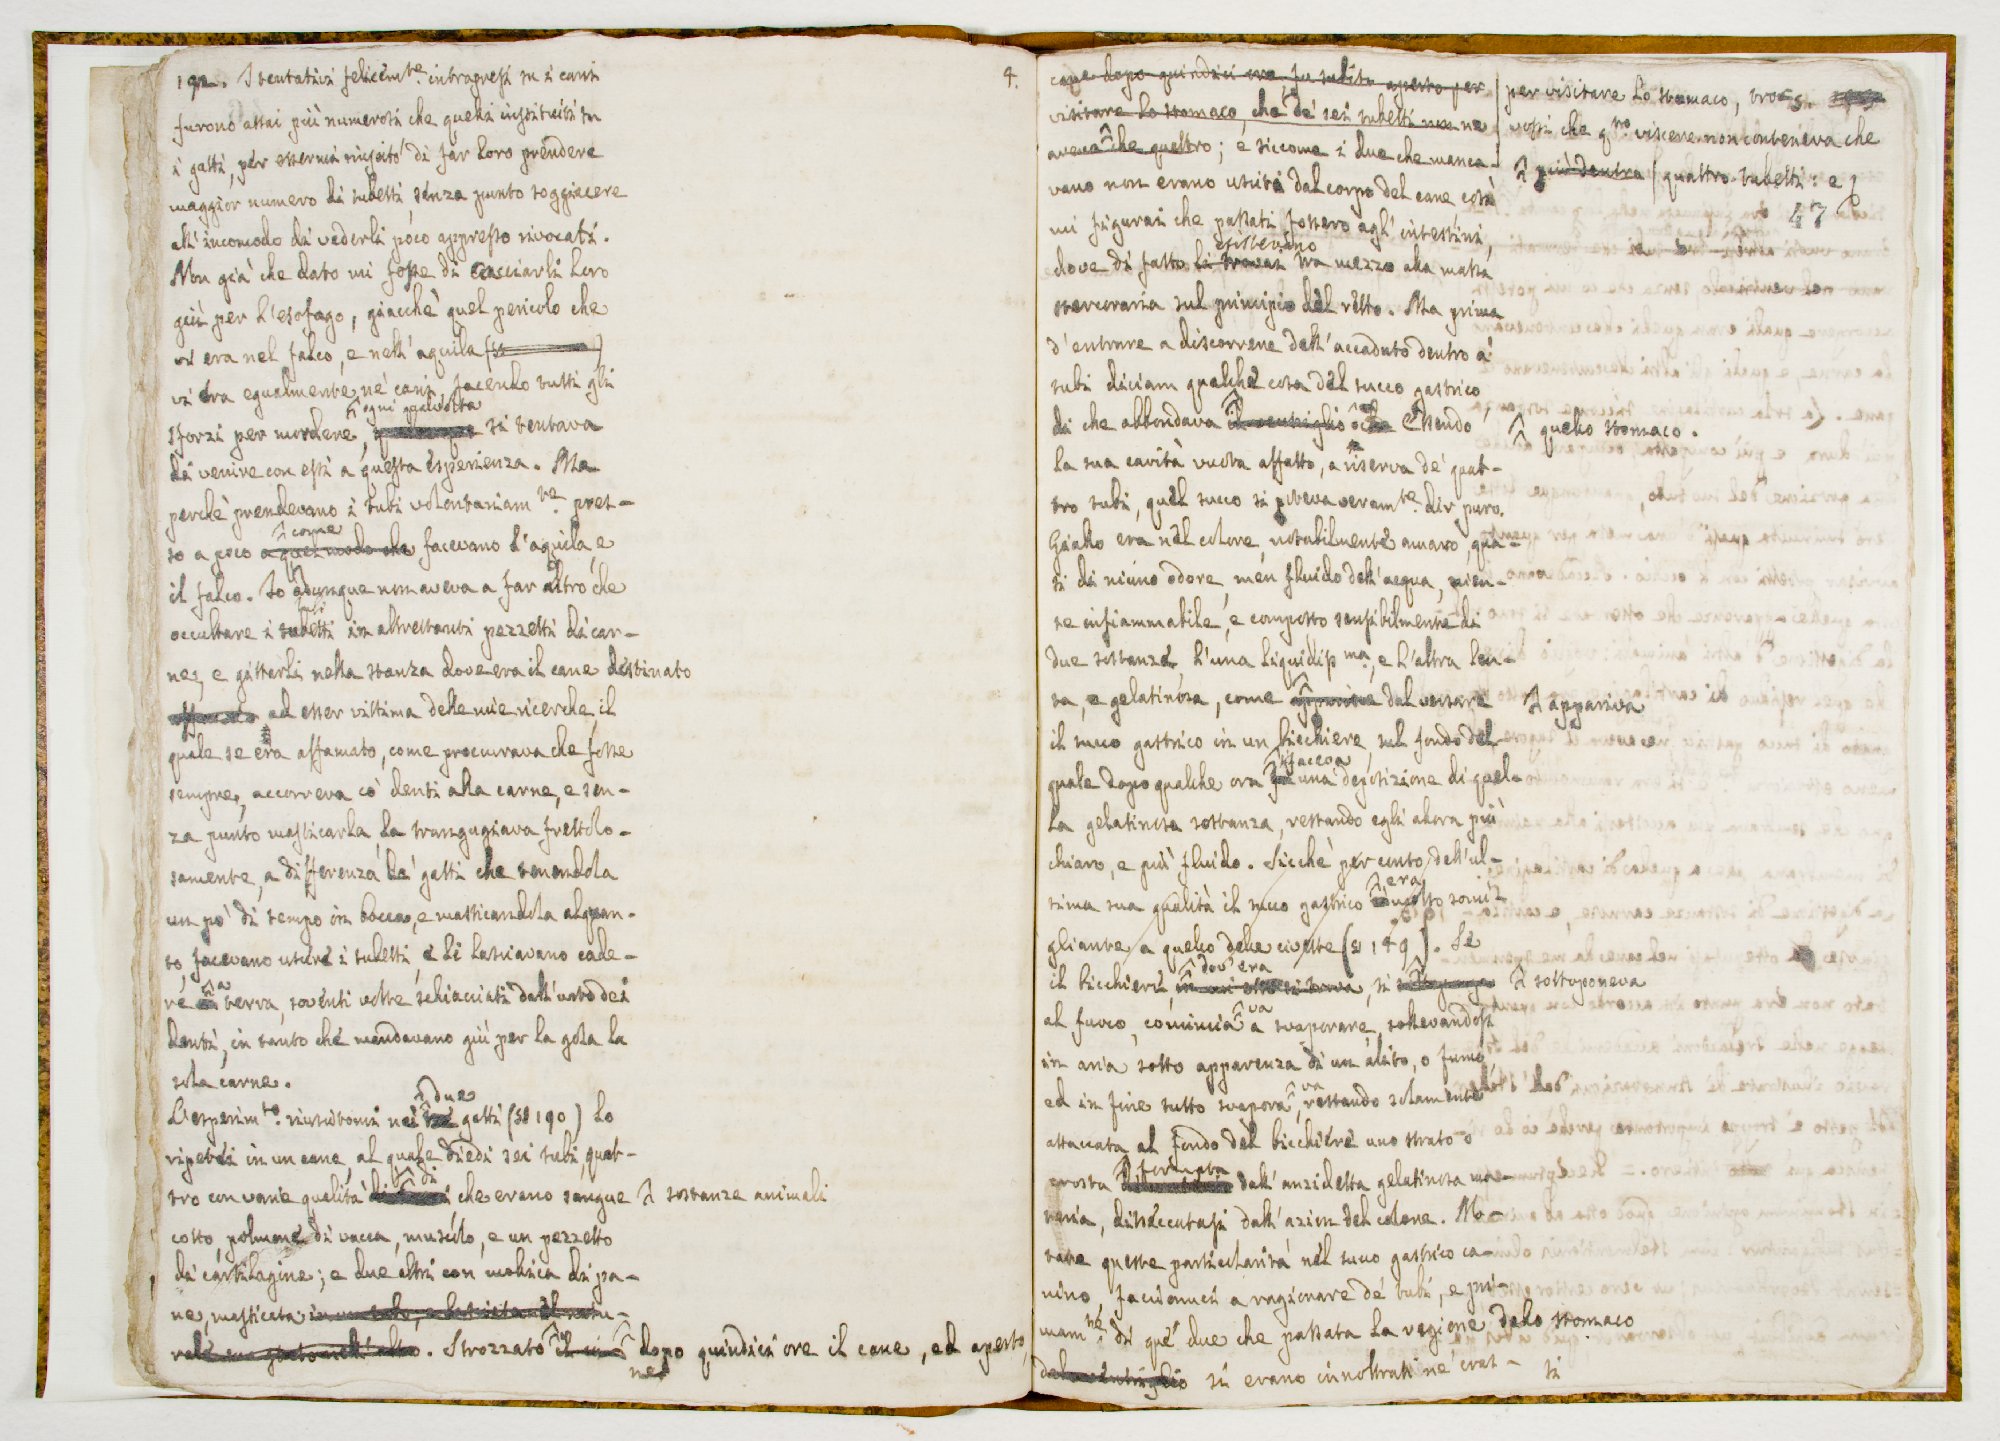 192. I tentativi felicem.te intrapresi su i cani
furono assai più numerosi che quelli instituiti su
i gatti, per essermi riuscito di far loro prendere
maggior numero di tubetti senza punto soggiacere
all'incomodo di vederli poco appresso rivocati.
Non già che dato mi fosse di cacciarli loro
giù per l'esofago, giacchè quel pericolo che
vi era nel falco, e nell'aquila
vi era egualmente ne' cani, facendo tutti gli
ogni qualvolta
sforzi per mordere, si tentava
di venire con essi a questa esperienza. Ma
perchè prendevano i tubi volontariam.te pres-
come
so a poco a quel modo che facevano l'aquila, e
il falco. Io adunque non aveva a far altro che
tubi
occultare i tubetti in altrettanti pezzetti di car-
ne, e gittarli nella stanza dove era il cane destinato
affamato ad esser vittima delle mie ricerche, il
quale se era affamato, come proccurava che fosse
sempre, accorreva co' denti alla carne, e sen-
za punto masticarla la trangugiava frettolo-
samente, a differenza de' gatti che tenendola
un po' di tempo in bocca, e masticandola alquan-
to, facevano uscire i tubetti, e li lasciavano cade-
a
re terra, soventi volte schiacciati dall'urto dei
denti, in tanto che mandavano giù per la gola la
sola carne.
due
L'esperim.to riuscitomi nei gatti (§ 190) lo
ripetei in un cane, al quale diedi sei tubi, quat-
di
tro con varie qualità che erano sangue sostanze animali
cotto, polmone di vacca, muscolo, e un pezzetto
di cartilagine; e due altri con mollica di pa-
ne, masticata in un tubo, e lasciata nel natu-
rale suo stato nell'altro. Strozzato il cane dopo quindici ore il cane, ed aperto,
ne
4.
cane dopo quindici ore fu subito aperto per
visitare lo stomaco, che de' sei tubetti non ne
aveva che quattro; e siccome i due che manca-
vano non erano usciti dal corpo del cane così
mi figurai che passati fossero agl'intestini,
esistevano
dove di fatto li trovai tra mezzo alla massa
stercoraria sul principio del retto. Ma prima
d'entrare a discorrere dell'accaduto dentro a'
tubi diciam qualche cosa del succo gastrico,
di che abbondava il ventriglio Essendo
la sua cavità vuota affatto, a riserva de' quat-
tro tubi, quel succo si poteva veram.te dir puro.
Giallo era nel colore, notabilmente amaro, qua-
si di niuno odore, men fluido dell'acqua, nien-
te infiammabile, e composto sensibilmente di
due sostanze, l'una liquidiss.ma, e l'altra len-
ta, e gelatinosa, come apparisce dal versare
il succo gastrico in un bicchiere, sul fondo del
faceva
quale dopo qualche ora una deposizione di quel-
la gelatinosa sostanza, restando egli allora più
chiaro, e più fluido. Sicchè per conto dell'ul-
era
tima sua qualità il succo gastrico è molto somi-
gliante a quello delle civette (§ 149). Se
dov'era
il bicchiere, in cui si trova, si
va
al fuoco, comincia a svaporare, sollevandosi
in aria sotto apparenza di un alito, o fumo
va
ed in fine tutto svapora, restando solamente
attaccata al fondo del bicchiere uno strato o
formata
crosta dall'anzidetta gelatinosa ma-
teria, disseccatasi dall'azion del calore. No-
tate queste particolarità nel succo gastrico ca-
nino, facciamci a ragionare de' tubi, e pri-
mam.te di que' due che passata la regione dello stomaco
del ventriglio si erano innoltrati ne' cras-
si
per visitare lo stomaco, tro-
vossi che q.sto viscere non conteneva che
più dentro quattro tubetti: e
47
quello stomaco.
appariva
sottoponeva